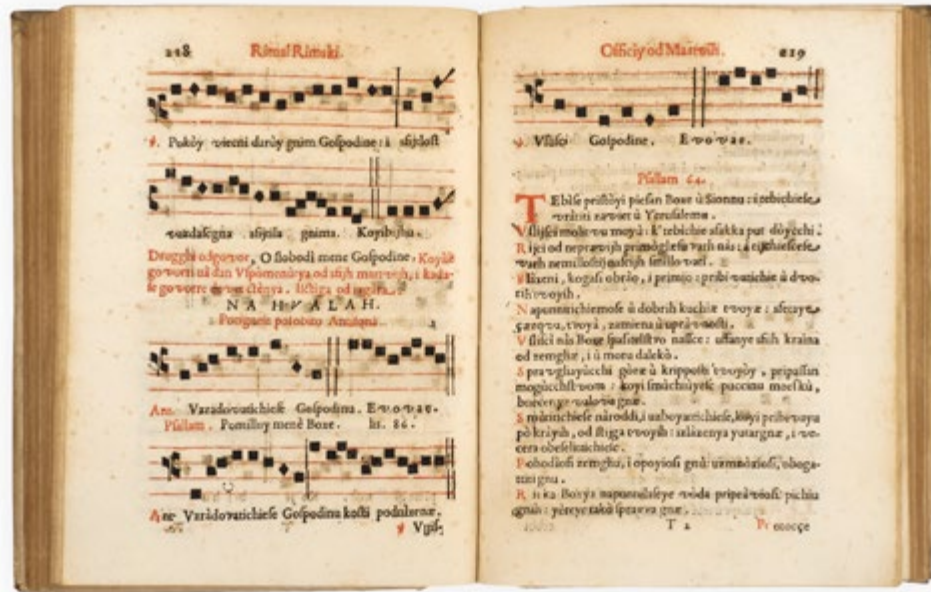 218 Ritual Rimski.
℣. Pokòy viecni darùy gnim Gospodine: i sfijtlost
vazdasegna sfijtila gnima. Koyibijhu.
Drugghi odgovor, O slobodi mene Gospodine, Koyàse
govorri nà dan Vspomenùtya od sfijh martvijh, i kada-
se govore devet sctènya. listiga od ozgàra.
NA HVALAH.
Antifona
Ant. Varadovatichiese Gospodinu. Evovae.
Psalam. Pomilluy menè Boxe. lis. 86.
Ant. Varàdovatichiese Gospodinu kosti
℣ Vslisc
Officiy od Martvih. 219
℣. Vslisci Gospodine. Evovae.
Psalam 64.
TEbise pristòyi piesan Boxe ù Sionnu: i tebichiese
vràtiti zaviet ù Yerusalemu.
Vslisci molitvu moyù: k' tebichie sfakka put dòycchi.
Rijci od nepravijh primòglise varh nàs: i
varh nemillostij nascijh smillovati.
Blàxeni, kogasi obrào, i primio: pribivatichie ù dvo-
rih tvoyih.
Napunnitichiemose ù dobrih kuchie tvoyæ: sfetaye
tvoyà, zamiena ù upràvnosti.
Vslisci nàs Boxe spasiteglstvo nasce: uffanye sfih kraina
od zemgliæ, i ù moru dalekò.
Spravgliayùcchi goræ ù kriposti tvoyòy, pripassàn
mogùcchstvom: koyi smùchiùyesc puccinu morskù,
valova gnæ.
Smùtitichiese nàroddi, i uzboyatichiese, koyi pribivayu
pò kràyih, od stiga tvoyih: izlàzenya yutargnæ, i ve-
cera obeselitichiesc.
Pohodiosi zemgliu, i opoyiosi gnù: uzmnòxiosi, oboga-
titi gnu.
Rika Boxya napunnilaseye vòda pripràviosi pichiu
gnih: yèreye takò sprava gnæ.
T 2